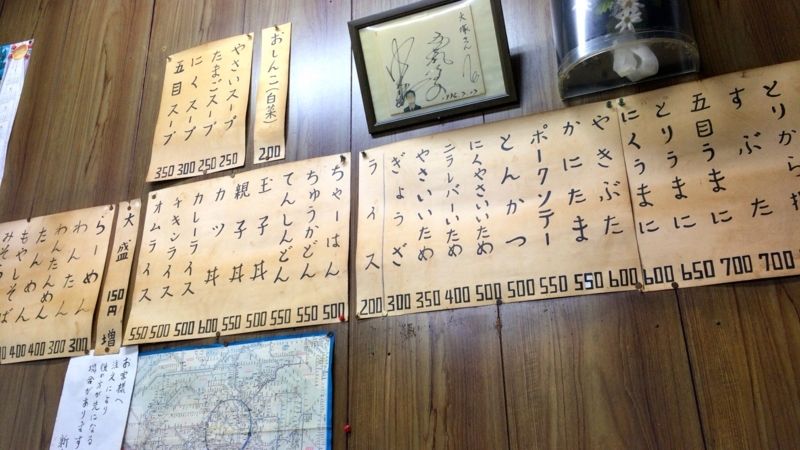 おしんこ(白菜) 200
やさいスープ 250
たまごスープ 250
にくスープ 300
五目スープ 350
大塚さん
とりから揚
すぶた 700
五目うまに 700
とりうまに 650
にくうまに 600
やきぶた 600
かにたま 550
ポークソテー 550
とんかつ 500
にくやさいいため 500
ニラレバーいため 400
やさいいため 350
ぎょうざ 300
ライス 200
ちゃーはん 500
ちゅうかどん 550
てんしんどん 550
玉子丼 500
親子丼 550
カツ丼 600
カレーライス 500
チキンライス 500
オムライス 550
大盛 150円増
らーめん 300
わんたん 300
お客様へ
注文により
後の方が先になる
場合があります